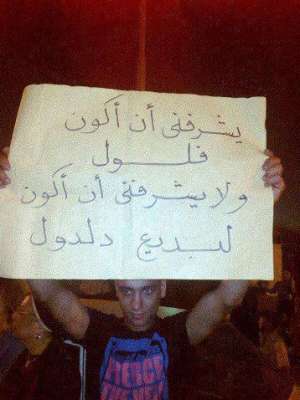 يشرفنى أن أكون
فلول
ولا يشرفنى أن أكون
لبديع دلدول
FIERCE